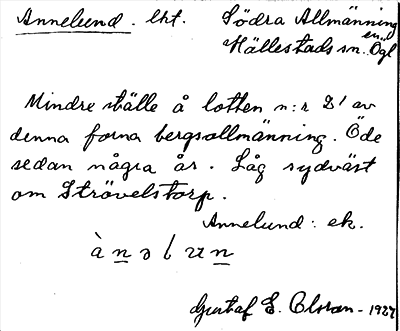 Annelund. lht. Södra Allmänning
en
Hällestads sn. Ögl
Mindre ställe å lotten n:r 8' av
denna forna bergsallmänning. Öde
sedan några år. Låg sydväst
om Strövelstorp.
Annelund: ek.
Gustaf E. Olsson - 1927